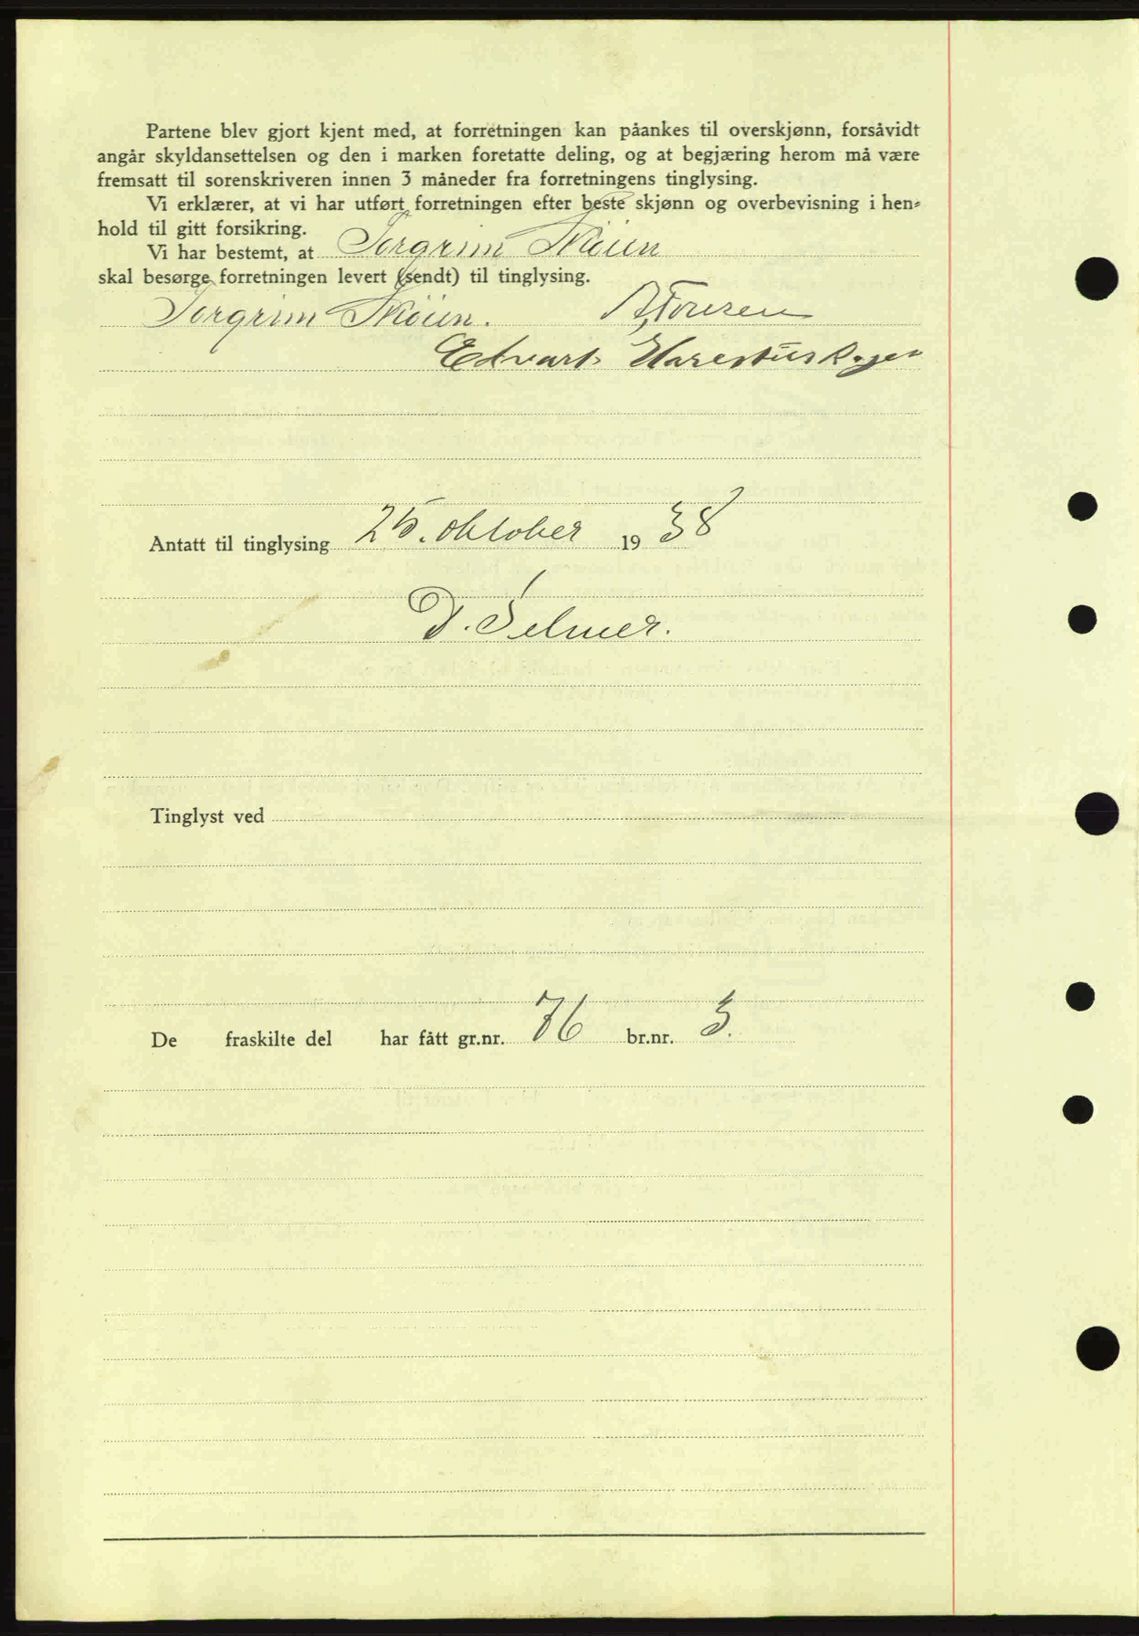 Partene blev gjort kjent med, at forretningen kan påankes til overskjønn, forsåvidt
angår skyldansettelsen og den i marken foretatte deling, og at begjæring herom må være
fremsatt til sorenskriveren innen 3 måneder fra forretningens tinglysing.
Vi erklærer, at vi har utført forretningen efter beste skjønn og overbevisning i hen-
hold til gitt forsikring.
Vi har bestemt, at Torgrim Sköien
skal besørge forretningen levert (sendt) til tinglysing.
Torgrim Sköien.
Edvart Harestuskogen
Antatt til tinglysing 25. oktober 1938
D. Selmer.
Tinglyst ved
De fraskilte del har fått gr.nr. 76 br.nr. 3.